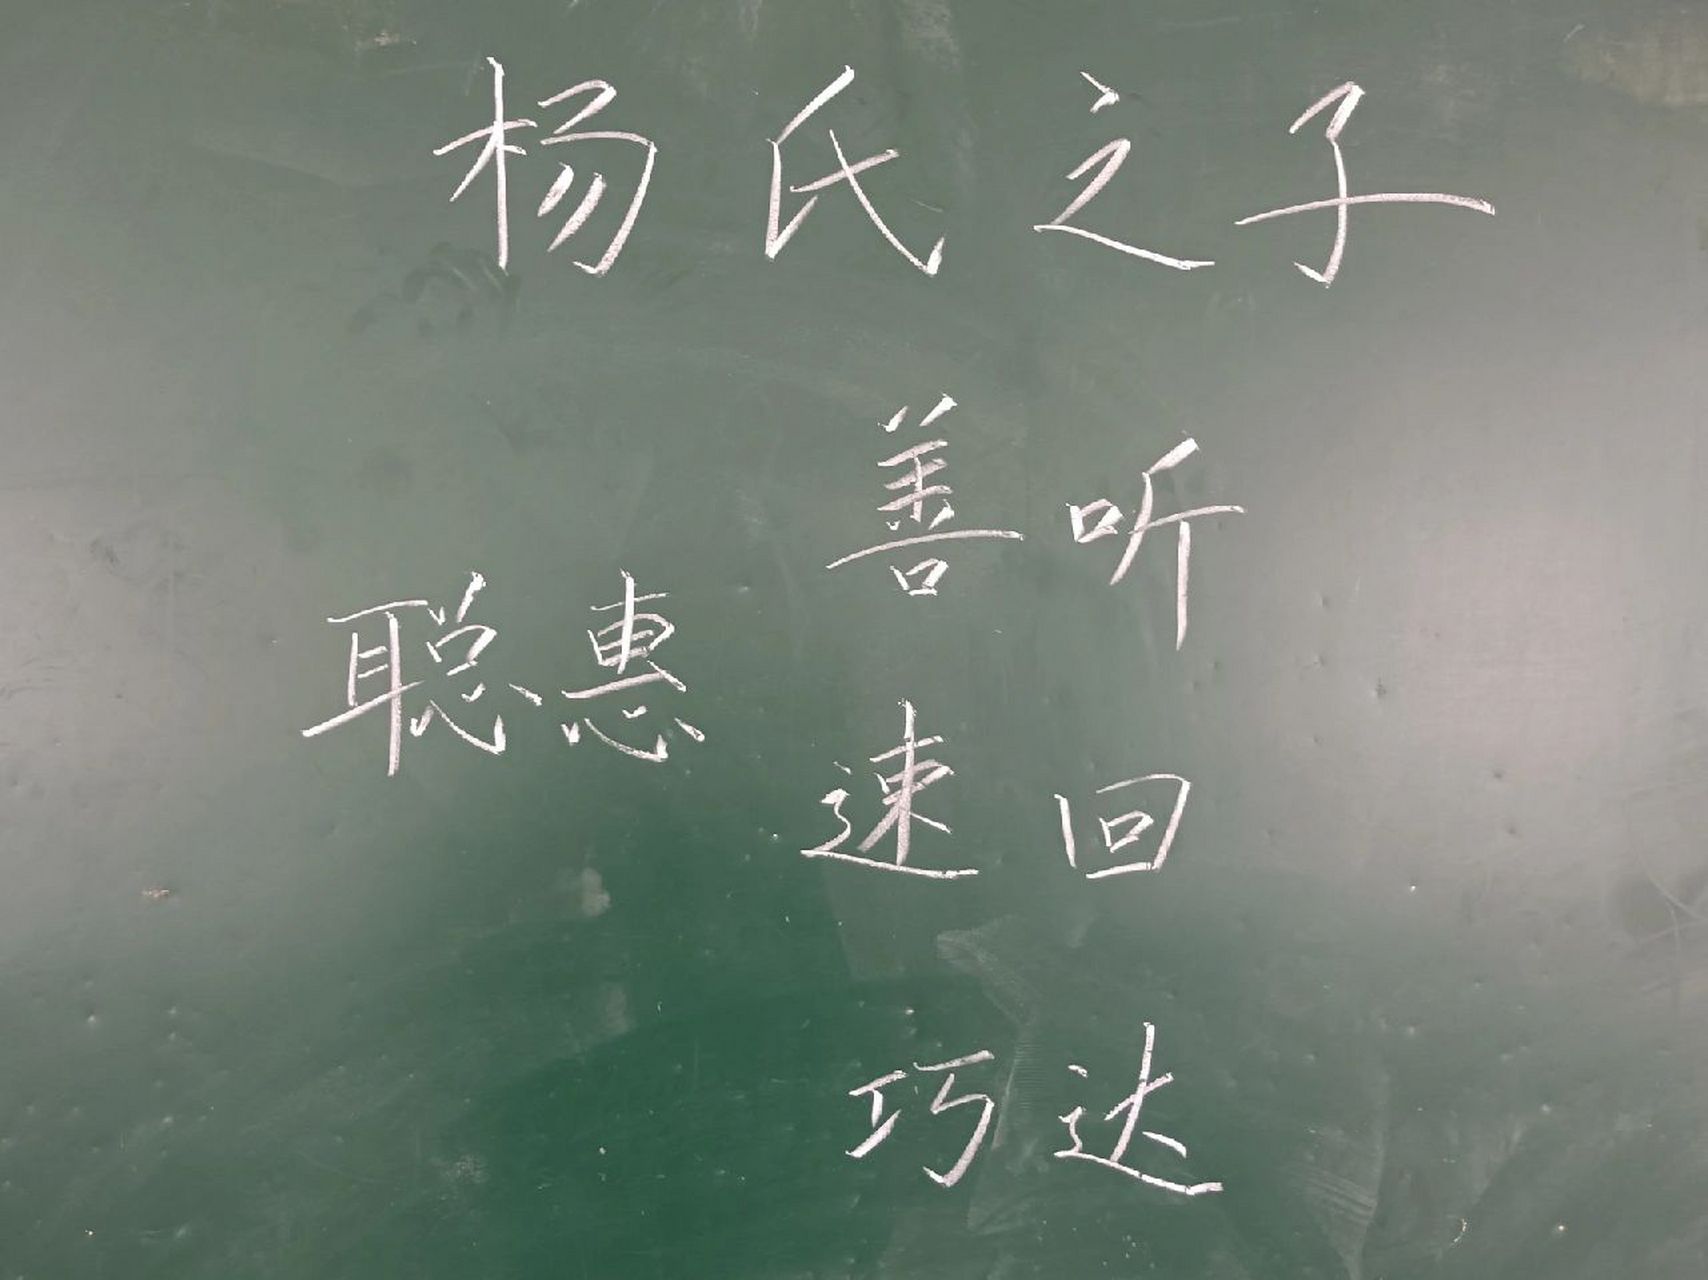 杨氏之子
善听
聪惠
速回
巧达